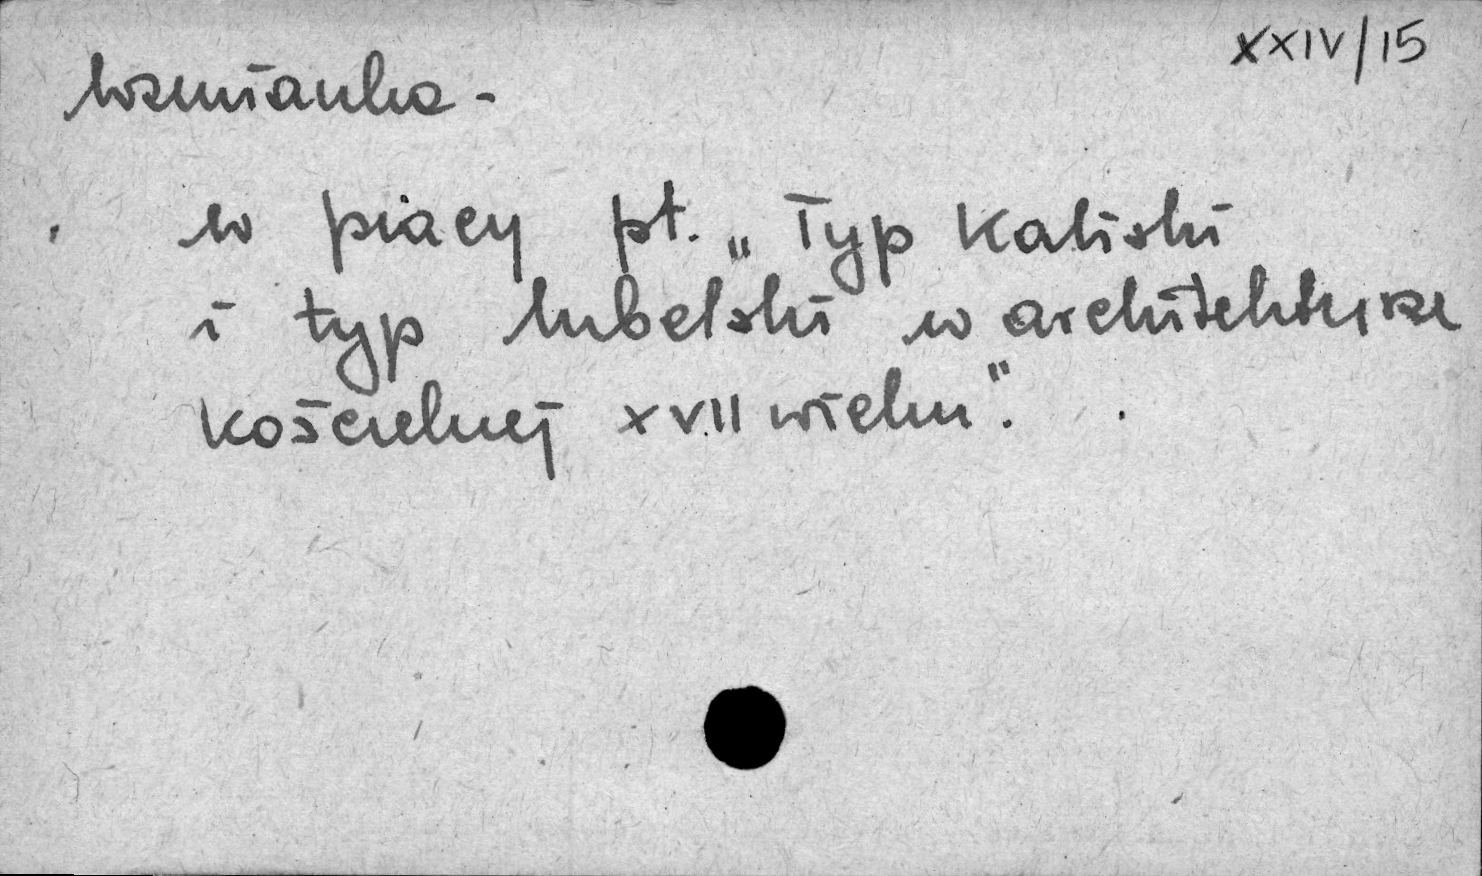 XXIV/15
Wzmianka -
w pracy pt. „Typ Kaliski
i typ lubelski w architekturze
kościelnej XVII wieku".